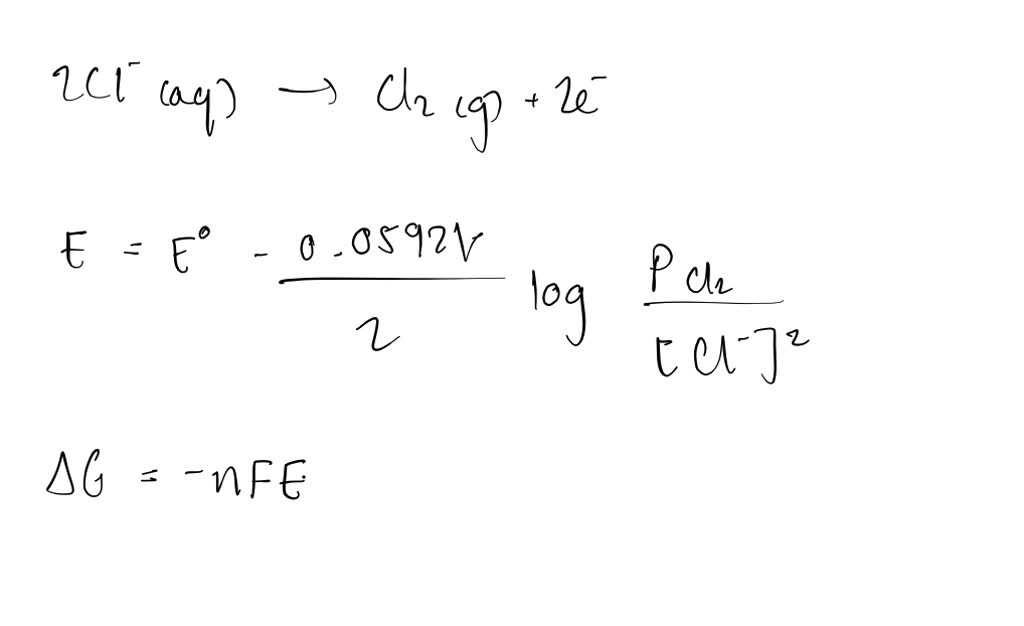 2Cl⁻ (aq) → Cl₂ (g) + 2e⁻
E = E⁰ - 0.0592V / 2 log P Cl₂ / [Cl⁻]²
ΔG = -nFE